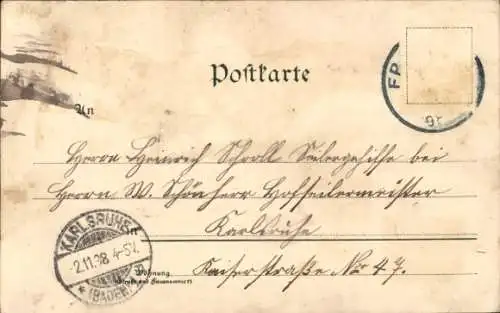 Postkarte
FR
98
An
Herrn Heinrich Schroll Seilergehilfe bei
Herrn W. Schönherr Hofseilermeister
in
Karlsruhe
KARLSRUHE
2.11.98 4-5N.
(BADEN)
Wohnung
(Straße und Hausnummer)
Kaiserstraße No 47.